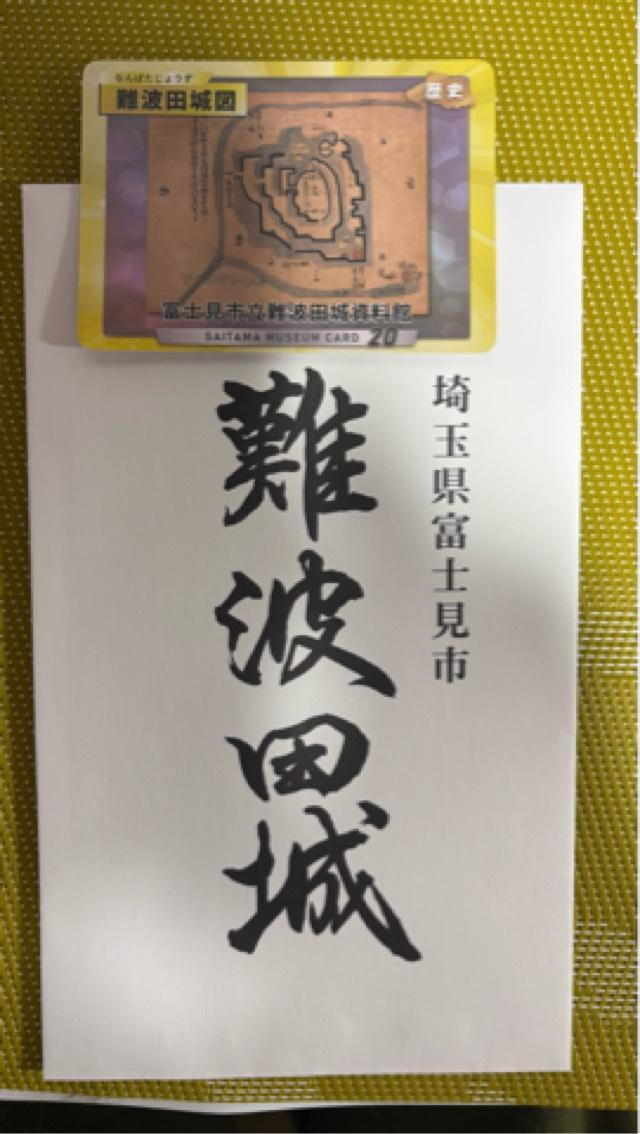 なんばたじょうず
難波田城図
歴史
富士見市立難波田城資料館
SAITAMA MUSEUM CARD 20
埼玉県富士見市
難波田城